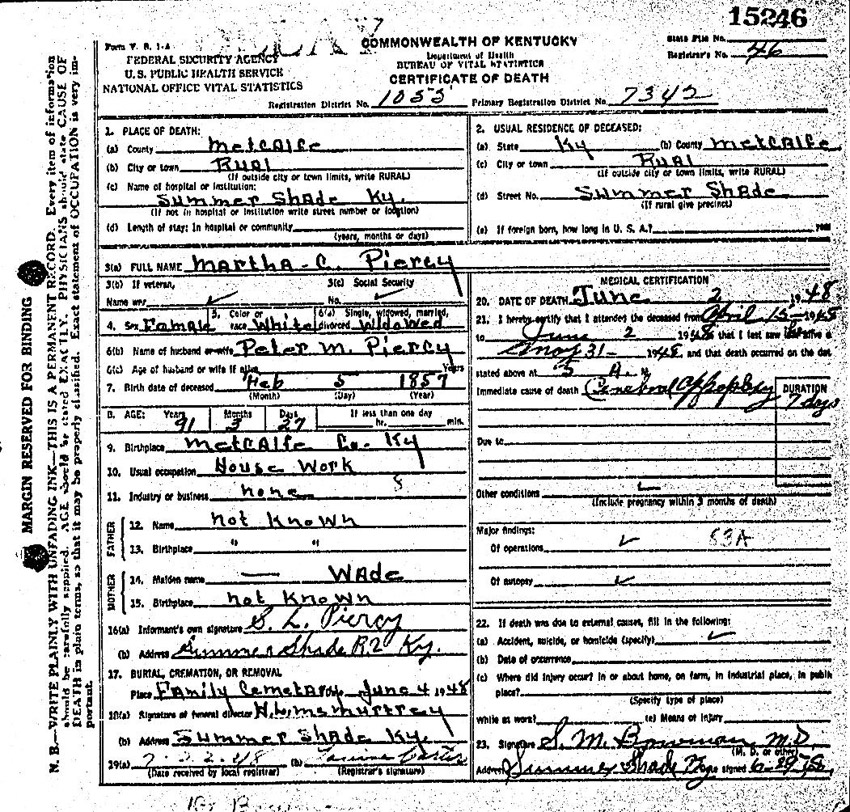 15246
Form V. S. 1-A
COMMONWEALTH OF KENTUCKY
State File No.
FEDERAL SECURITY AGENCY
Department of Health
Registrar's No. 46
U. S. PUBLIC HEALTH SERVICE
BUREAU OF VITAL STATISTICS
NATIONAL OFFICE VITAL STATISTICS
CERTIFICATE OF DEATH
Registration District No. 1055 Primary Registration District No. 7342
MARGIN RESERVED FOR BINDING
N. B.—WRITE PLAINLY WITH UNFADING INK—THIS IS A PERMANENT RECORD. Every item of information
should be carefully supplied. AGE should be stated EXACTLY. PHYSICIANS should state CAUSE OF
DEATH in plain terms, so that it may be properly classified. Exact statement of OCCUPATION is very im-
portant.
1. PLACE OF DEATH:
(a) County Metcalfe
(b) City or town Rural
(If outside city or town limits, write RURAL)
(c) Name of hospital or institution:
Summer Shade Ky.
(If not in hospital or institution write street number or location)
(d) Length of stay: In hospital or community
(years, months or days)
2. USUAL RESIDENCE OF DECEASED:
(a) State Ky (b) County Metcalfe
(c) City or town Rural
(If outside city or town limits, write RURAL)
(d) Street No. Summer Shade
(If rural give precinct)
(e) If foreign born, how long in U. S. A.? year
3(a) FULL NAME Martha C. Piercy
3(b) If veteran, 3(c) Social Security
Name war ✓ No. ✓
4. Sex Female 5. Color or race White 6(a) Single, widowed, married, divorced Widowed
6(b) Name of husband or wife Peter M. Piercy
6(c) Age of husband or wife if alive Years
7. Birth date of deceased Feb 5 1857
(Month) (Day) (Year)
8. AGE: Years 91 Months 3 Days 27 If less than one day hr. min.
9. Birthplace Metcalfe Co. Ky
10. Usual occupation House Work
11. Industry or business none
FATHER
12. Name not Known
13. Birthplace " "
MOTHER
14. Maiden name — Wade
15. Birthplace not Known
16(a) Informant's own signature S. L. Piercy
(b) Address Summer Shade R.2 Ky.
17. BURIAL, CREMATION, OR REMOVAL
Place Family Cemetary June 4 1948
18(a) Signature of funeral director
(b) Address Summer Shade Ky.
19(a) (b) Carter
(Date received by local registrar) (Registrar's signature)
MEDICAL CERTIFICATION
20. DATE OF DEATH June 2 1948
21. I hereby certify that I attended the deceased from April 15- 1948
to June 2 1948 that I last saw her alive on
May 31- 1948 and that death occurred on the date
stated above at 5 A. M
Immediate cause of death Cerebral Appoplexy DURATION
7 days
Due to
Other conditions
(Include pregnancy within 3 months of death)
Major findings:
Of operations ✓ 83A
Of autopsy ✓
22. If death was due to external causes, fill in the following:
(a) Accident, suicide, or homicide (specify) ✓
(b) Date of occurrence
(c) Where did injury occur? In or about home, on farm, in industrial place, in public
place?
(Specify type of place)
While at work? (e) Means of injury
23. Signature S. M. Bowman M. D.
(M. D. or other)
Address Summer Shade Ky signed